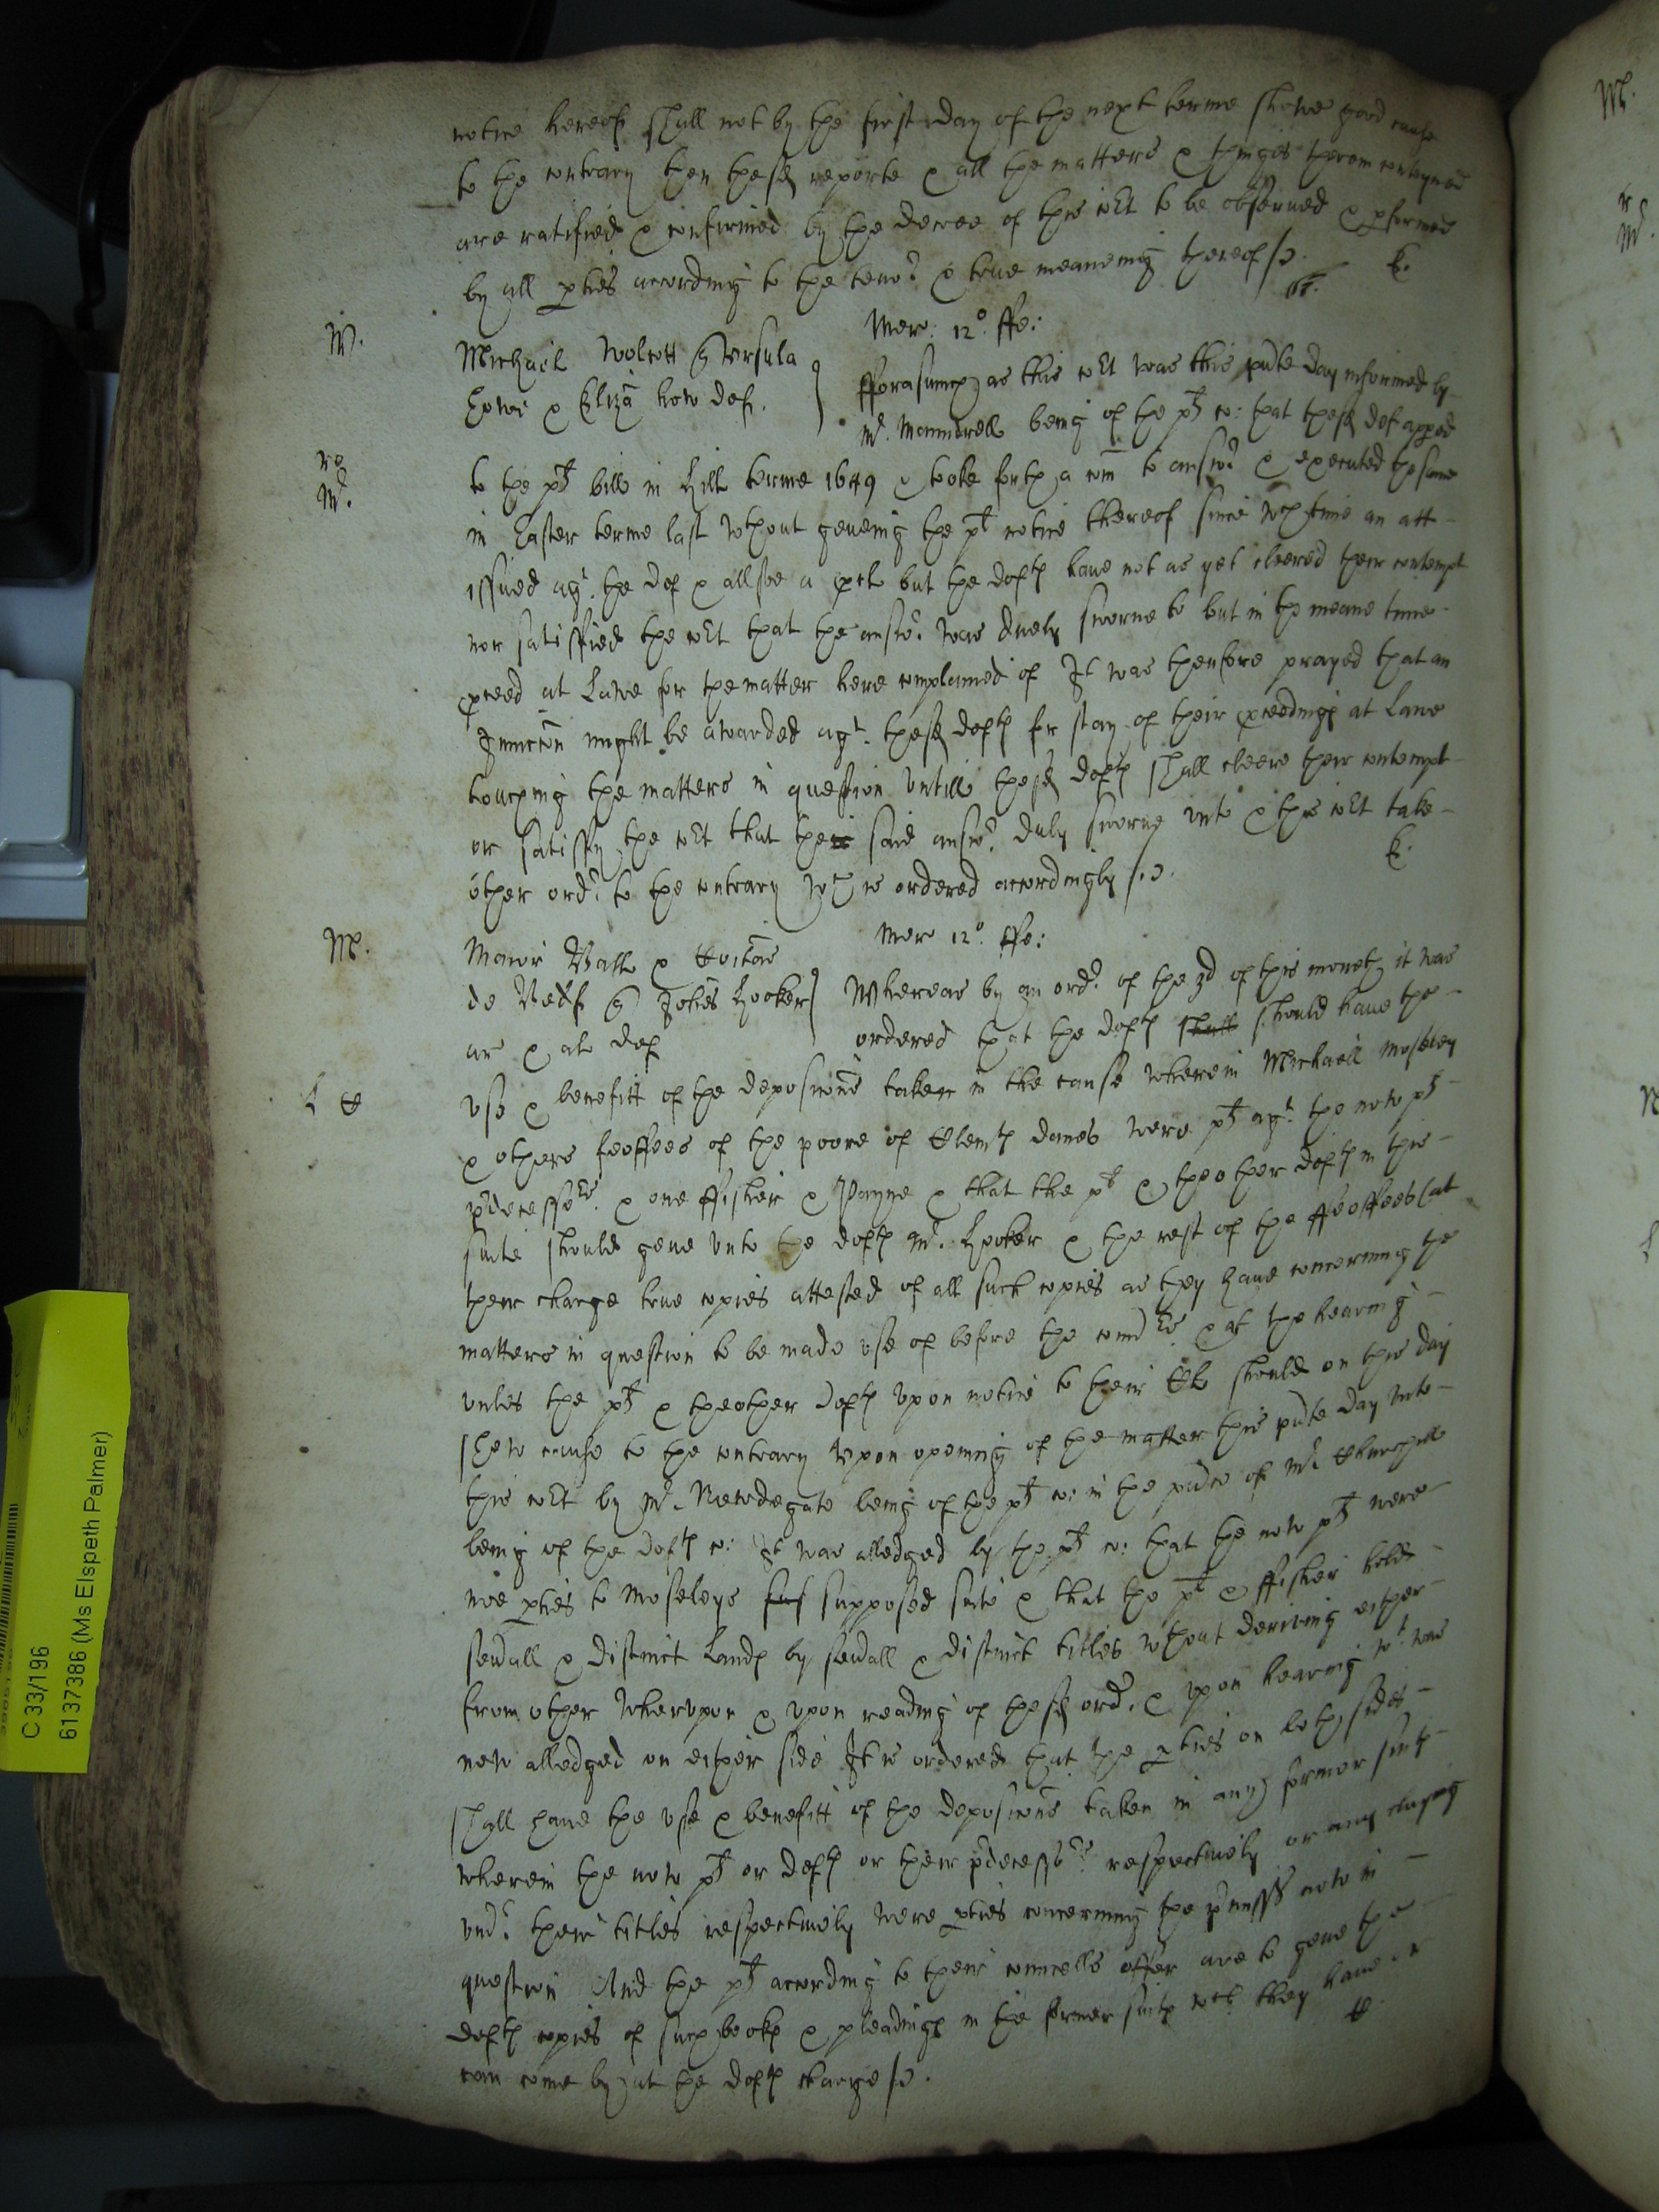 notice hereof shall not by the first day of the next terme shewe good cause
to the contrary then these reporte & all the matters & thinges therein conteyned
are ratified & confirmed by the decree of this cot to be observed & pformed
by all pties according to the teno.r & true meaneing thereof /.
k.
M.
Mer: 12o. ffe:
Michaeil Wolcott q Vrsula
Exwi & Eliza how def.
fforasmuch as this cot was this pnte day informed by
Mr. Maundrell being of the pts co: that these def apped
re
Mr.
to the pts bill in Hill terme 1649 & tooke forth a com to answ.r & executed the same
in Easter terme last wthout geveing the pt notice thereof since wch time an att
issued agt. the def & allsoe a pcl but the defts have not as yet cleered their contempt
nor satisfied the cot that the answ.r was duely sworne to but in the meane time
pceed at Lawe for the matter here complained of It was therefore prayed that an
Iniuncon might be awarded agt. these defts for stay of their pceedings at Lawe
touching the matters in question vntill these defts shall cleere their contempt
or satisfy the cot that their said answ.r duly sworne vnto & this cot take
other ord.r to the contrary wch is ordered accordingly /.
k.
M.
Mer 12o. ffe:
Maior Ball & Custos
de Redf q Johes Hooker
ar & al def
Whereas by an ord.r of the 3d of this moneth it was
ordered that the defts shall should have the
L C
vse & benefitt of the deposicons taken in the cause wherein Michaell Moseley
& others feoffees of the poore of Clemts danes were pts agt. the now pts
pdecessors. & one ffisher & Payne & that the pt & theother defts in this
suite should geve vnto the defts Mr. Hooker & the rest of the ffeoffees (at
their charge true copies attested of all such copies as they have concerning the
matters in question to be made vse of before the comrs & at the hearing
vnles the pts & theother defts vpon notice to their Cl should on this day
shew cause to the contrary Vpon opening of the matter this pnte day vnto
this cot by Mr. Newdegate being of the pts co: in the pnce of Mr. Churchill
being of the defts co: It was alledged by the pts co: that the now pts were
noe pties to Moseleys suf supposed suite & that the pt & ffisher hold
seuall & distinct Lands by seuall & distinct titles wthout deriving either
from other Wherupon & vpon reading of these ord.r & vpon hearing wt. was
now alledged on either side It is ordered that the pties on both sides
shall have the vse & benefitt of the deposicons taken in any former suits
wherein the now pts or defts or their pdecessors respectively or any clayming
vnd.r their titles respectively were pties concerning the pmisss now in
question And the pts according to their councells offer are to geve the
defts copies of such books & pleadings in the former suits wch they have or
can come by at the defts charge /.
C
C 33/196
6137386 (Ms Elspeth Palmer)